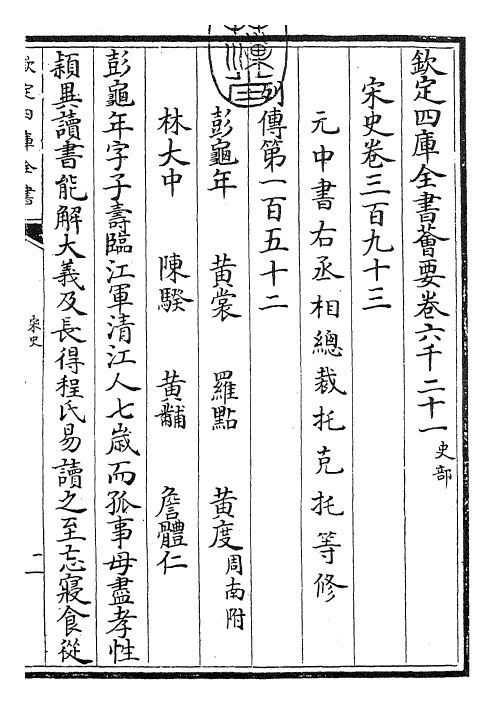 欽定四庫全書薈要卷六千二十一 史部
宋史卷三百九十三
元中書右丞相總裁托克托等修
列傳第一百五十二
彭龜年 黃裳 羅點 黃度 周南附
林大中 陳騤 黃黼 詹體仁
彭龜年字子壽臨江軍清江人七歲而孤事母盡孝性
頴異讀書能解大義及長得程氏易讀之至忘寢食從
欽定四庫全書
宋史